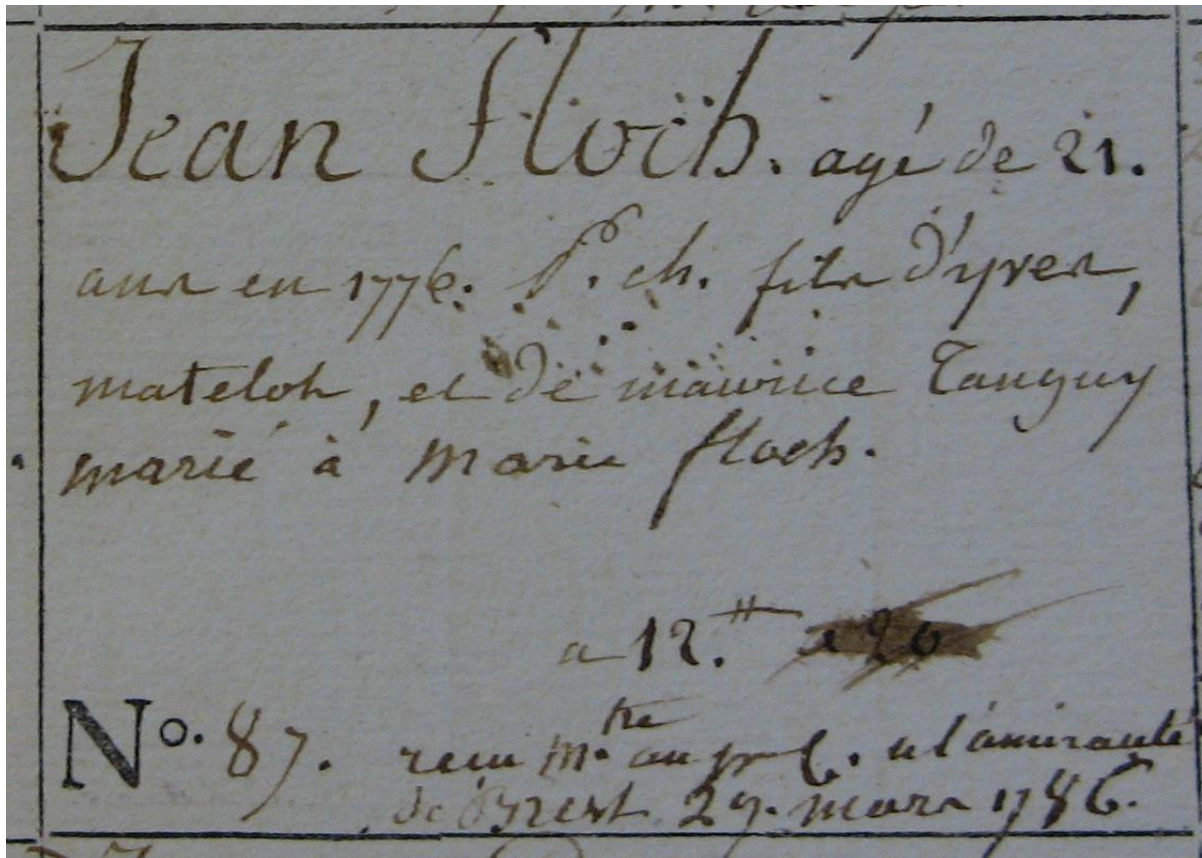 Jean Floch. agé de 21.
ans en 1776. P. ch. fils d'yves,
matelot, et de maurice Tanguy
marié à Marie floch.
a 12.
N°. 87. recu m.tre au p.t C. a l'amirauté
de Brest 29. mars 1786.